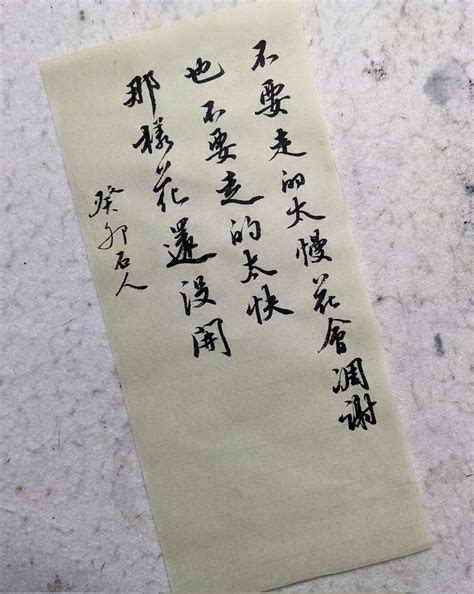 不要走的太慢花會凋謝
也不要走的太快
那樣花還沒開
癸卯石人